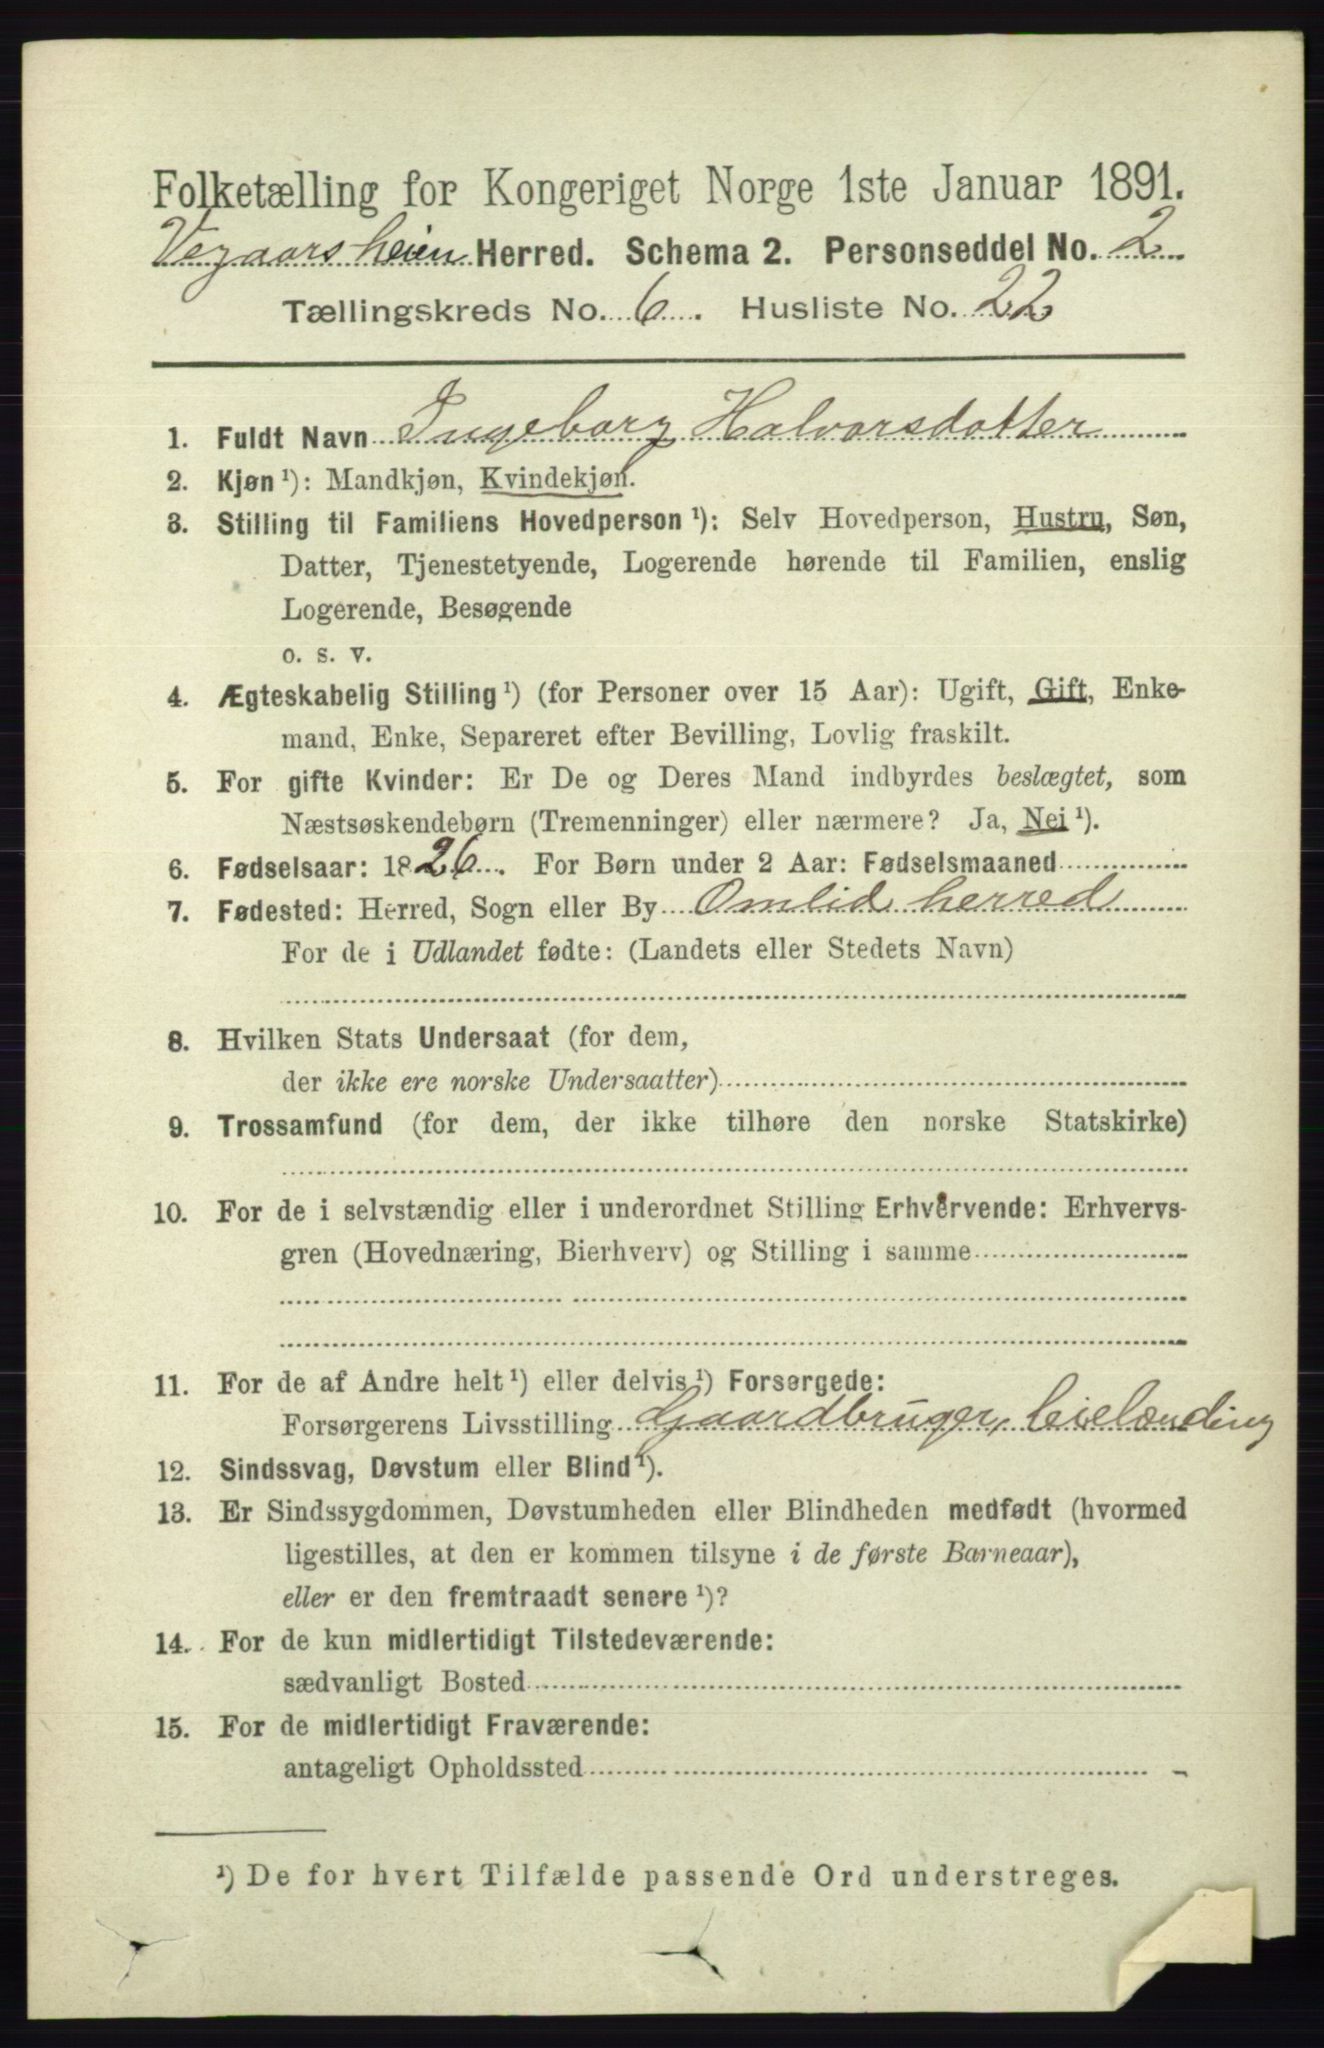 Folketælling for Kongeriget Norge 1ste Januar 1891.
Vegaarsheien Herred. Schema 2. Personseddel No. 2
Tællingskreds No. 6. Husliste No. 22
1. Fuldt Navn Ingeborg Halvorsdatter
2. Kjøn ¹): Mandkjøn, Kvindekjøn.
3. Stilling til Familiens Hovedperson ¹): Selv Hovedperson, Hustru, Søn,
Datter, Tjenestetyende, Logerende hørende til Familien, enslig
Logerende, Besøgende
o. s. v.
4. Ægteskabelig Stilling ¹) (for Personer over 15 Aar): Ugift, Gift, Enke-
mand, Enke, Separeret efter Bevilling, Lovlig fraskilt.
5. For gifte Kvinder: Er De og Deres Mand indbyrdes beslægtet, som
Næstsøskendebørn (Tremenninger) eller nærmere? Ja, Nei ¹).
6. Fødselsaar: 1826. For Børn under 2 Aar: Fødselsmaaned
7. Fødested: Herred, Sogn eller By Omlid herred
For de i Udlandet fødte: (Landets eller Stedets Navn)
8. Hvilken Stats Undersaat (for dem,
der ikke ere norske Undersaatter)
9. Trossamfund (for dem, der ikke tilhøre den norske Statskirke)
10. For de i selvstændig eller i underordnet Stilling Erhvervende: Erhvervs-
gren (Hovednæring, Bierhverv) og Stilling i samme
11. For de af Andre helt ¹) eller delvis ¹) Forsørgede:
Forsørgerens Livsstilling Gaardbruger, leielænding
12. Sindssvag, Døvstum eller Blind ¹).
13. Er Sindssygdommen, Døvstumheden eller Blindheden medfødt (hvormed
ligestilles, at den er kommen tilsyne i de første Barneaar),
eller er den fremtraadt senere ¹)?
14. For de kun midlertidigt Tilstedeværende:
sædvanligt Bosted
15. For de midlertidigt Fraværende:
antageligt Opholdssted
¹) De for hvert Tilfælde passende Ord understreges.